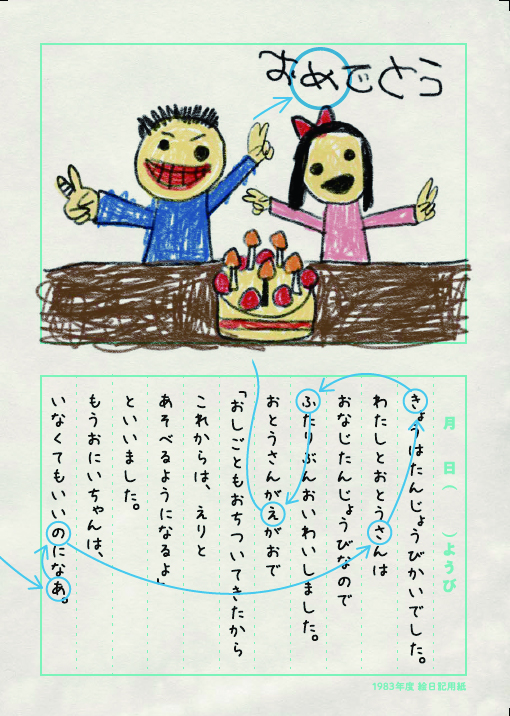 おめでとう
月 日（ ）ようび
きょうはたんじょうびかいでした。
わたしとおとうさんは
おなじたんじょうびなので
ふたりぶんおいわいしました。
おとうさんがえがおで
「おしごともおちついてきたから
これからは、えりと
あそべるようになるよ」
といいました。
もうおにいちゃんは、
いなくてもいいのになあ。
1983年度 絵日記用紙